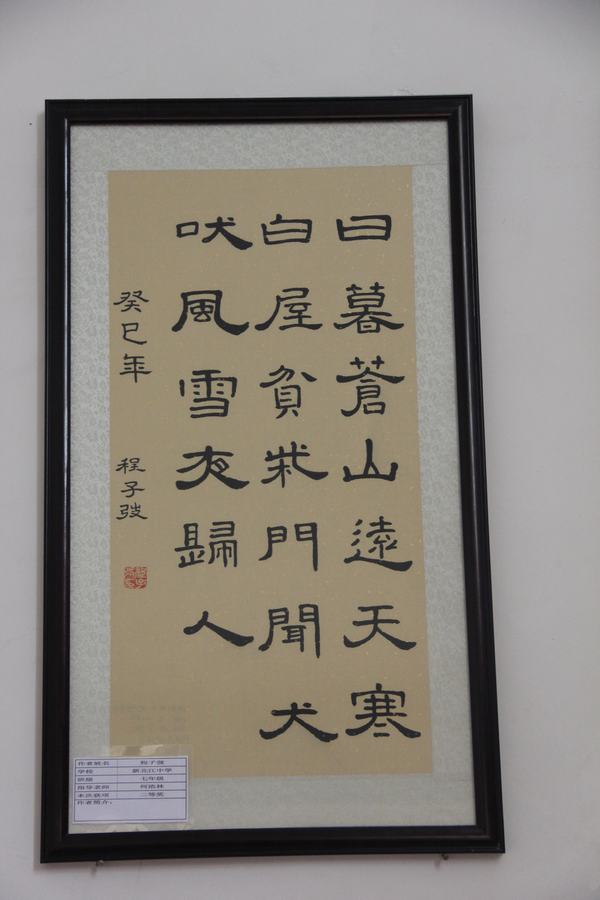 日暮蒼山遠天寒
白屋貧柴門聞犬
吠風雪夜歸人
癸巳年
程子弢
作者姓名 程子弢
学校 新北江中学
班级 七年级
指导老师
本次获项 二等奖
作者简介：